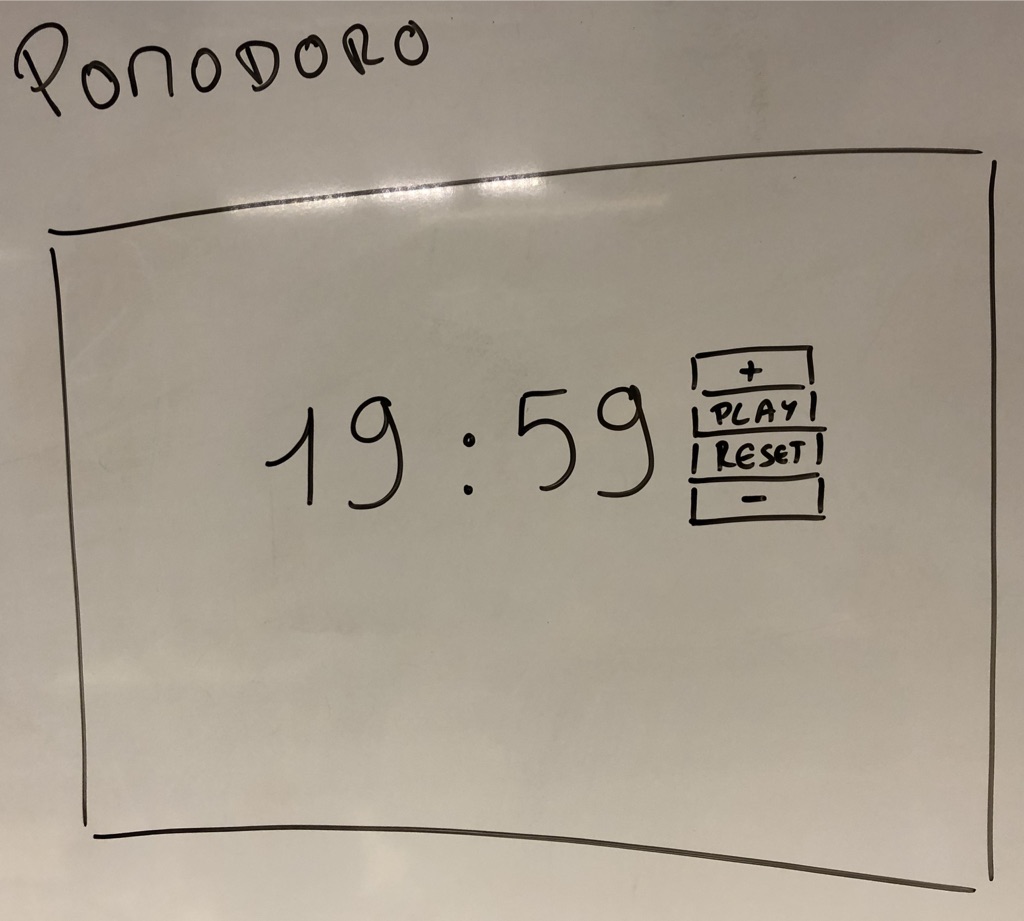 POMODORO
19:59
+
PLAY
RESET
-